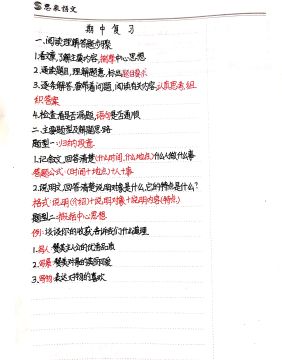 思泉语文
期中复习
一.阅读理解答题步骤
1.看文章,了解主要内容,揣摩中心思想
2.通读题目,理解题意,标出题目要求
3.逐条解答,带着问题,阅读有关内容,认真思考,组
织答案
4.检查看是否漏题,语句是否通顺
二.主要题型及解题思路
题型一:归纳段意.
1.记叙文,回答清楚(什么时间,什么地点)什么人做什么事
答题公式:(时间+地点)+人+事
2.说明文,回答清楚说明对象是什么,它的特点是什么?
格式:说明(介绍)+说明对象+说明内容(特点)
题型二:概括中心思想.
例:谈谈你的收获,告诉我们什么道理
1.写人:赞美主人公的优秀品质
2.写景:赞美对象的美丽可爱
3.写物:表达对物的喜欢